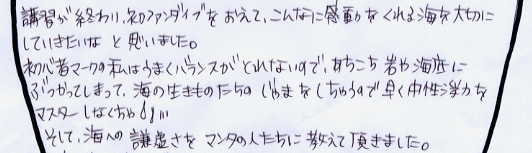 講習が終わり、初ファンダイブをおえて、こんなに感動をくれる海を大切に
していきたいな と思いました。
初心者マークの私はうまくバランスがとれないので、あちこち岩や海底に
ぶつかってしまって、海の生きものたちのじゃまをしちゃうので早く中性浮力を
マスターしなくちゃ!!
そして、海への謙虚さをマンタの人たちに教えて頂きました。